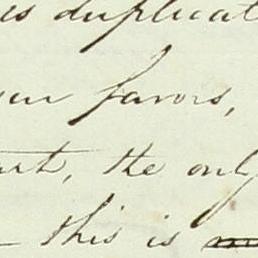 is duplicat
favors,
the only
this is